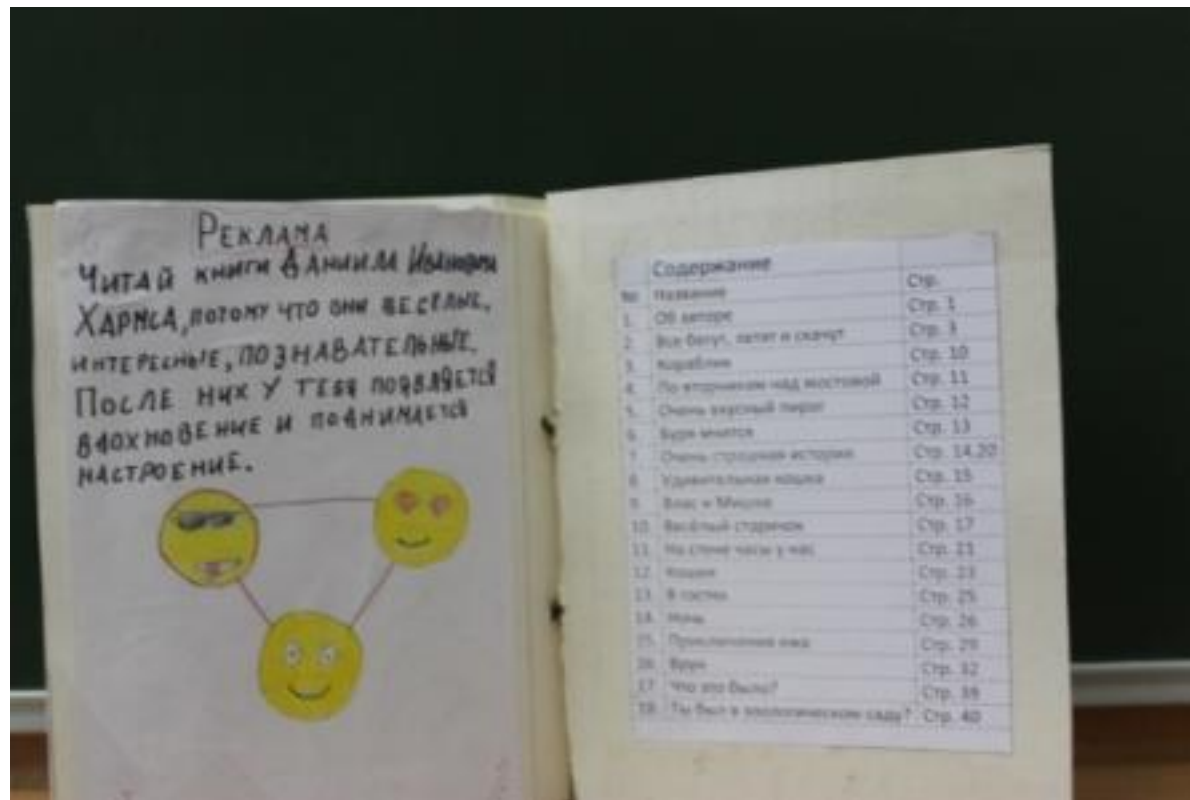 РЕКЛАМА
ЧИТАЙ КНИГИ ДАНИИЛА ИВАНОВИЧА
ХАРМСА, ПОТОМУ ЧТО ОНИ ВЕСЁЛЫЕ,
ИНТЕРЕСНЫЕ, ПОЗНАВАТЕЛЬНЫЕ.
ПОСЛЕ НИХ У ТЕБЯ ПОЯВЛЯЕТСЯ
ВДОХНОВЕНИЕ И ПОДНИМАЕТСЯ
НАСТРОЕНИЕ.
Содержание
№ Название Стр.
1. Об авторе Стр. 1
2. Все бегут, летят и скачут Стр. 3
3. Кораблик Стр. 10
4. По вторникам над мостовой Стр. 11
5. Очень вкусный пирог Стр. 12
6. Буря мчится Стр. 13
7. Очень страшная история Стр. 14,20
8. Удивительная кошка Стр. 15
9. Влас и Мишка Стр. 16
10. Весёлый старичок Стр. 17
11. На стене часы у нас Стр. 21
12. Кошки Стр. 23
13. В гостях Стр. 25
14. Ночь Стр. 26
15. Приключения ежа Стр. 29
16. Врун Стр. 32
17. Что это было? Стр. 39
18. Ты был в зоологическом саду? Стр. 40